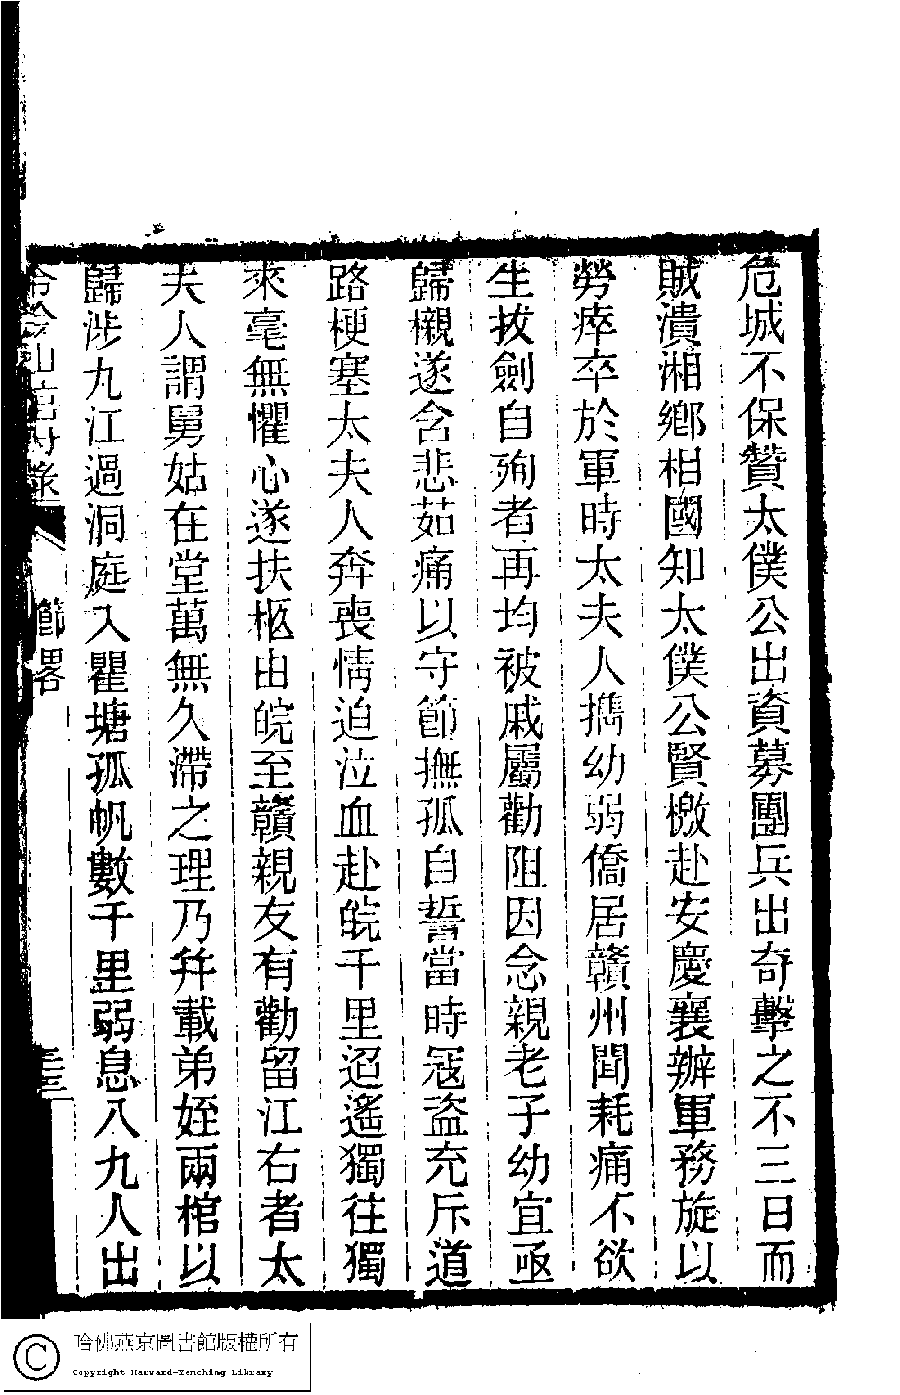 危城不保贊太僕公出資募團兵出奇擊之不三日而
賊潰湘鄉相國知太僕公賢檄赴安慶襄辦軍務旋以
勞瘁卒於軍時太夫人攜幼弱僑居贛州聞耗痛不欲
生拔劍自殉者再均被戚屬勸阻因念親老子幼宜亟
歸櫬遂含悲茹痛以守節撫孤自誓當時寇盜充斥道
路梗塞太夫人奔喪情迫泣血赴皖千里迢遙獨往獨
來毫無懼心遂扶柩由皖至贛親友有勸留江右者太
夫人謂舅姑在堂萬無久滯之理乃并載弟姪兩棺以
歸涉九江過洞庭入瞿塘孤帆數千里弱息八九人出
山館
節畧
哈佛燕京圖書館版權所有
Copyright Harvard-Yenching Library